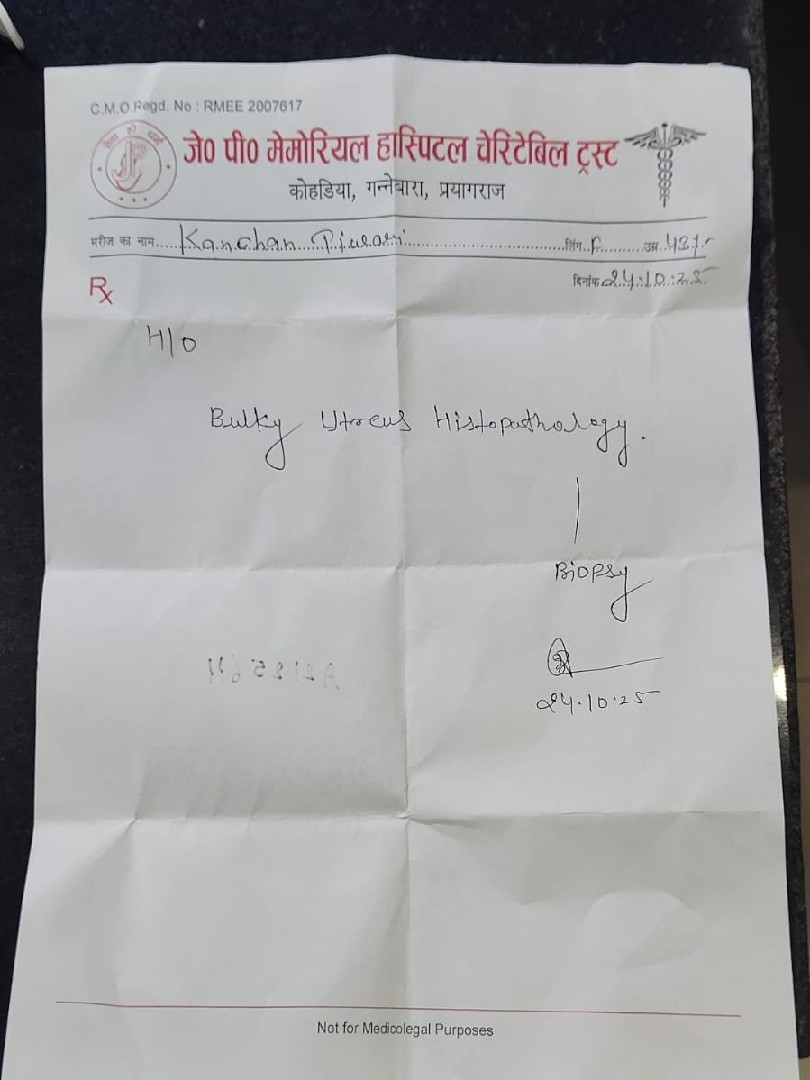 C.M.O.Regd. No : RMEE 2007617
जे0 पी0 मेमोरियल हास्पिटल चेरिटेबिल ट्रस्ट
कोहडिया, गन्नेबारा, प्रयागराज
मरीज का नाम..... Kanchan Tiwari ..... लिंग.. F ..... उम्र.. 42Y
Rx
दिनांक 24.10.25
H/O
Bulky Utreus Histopathology.
Biopsy
24.10.25
Not for Medicolegal Purposes